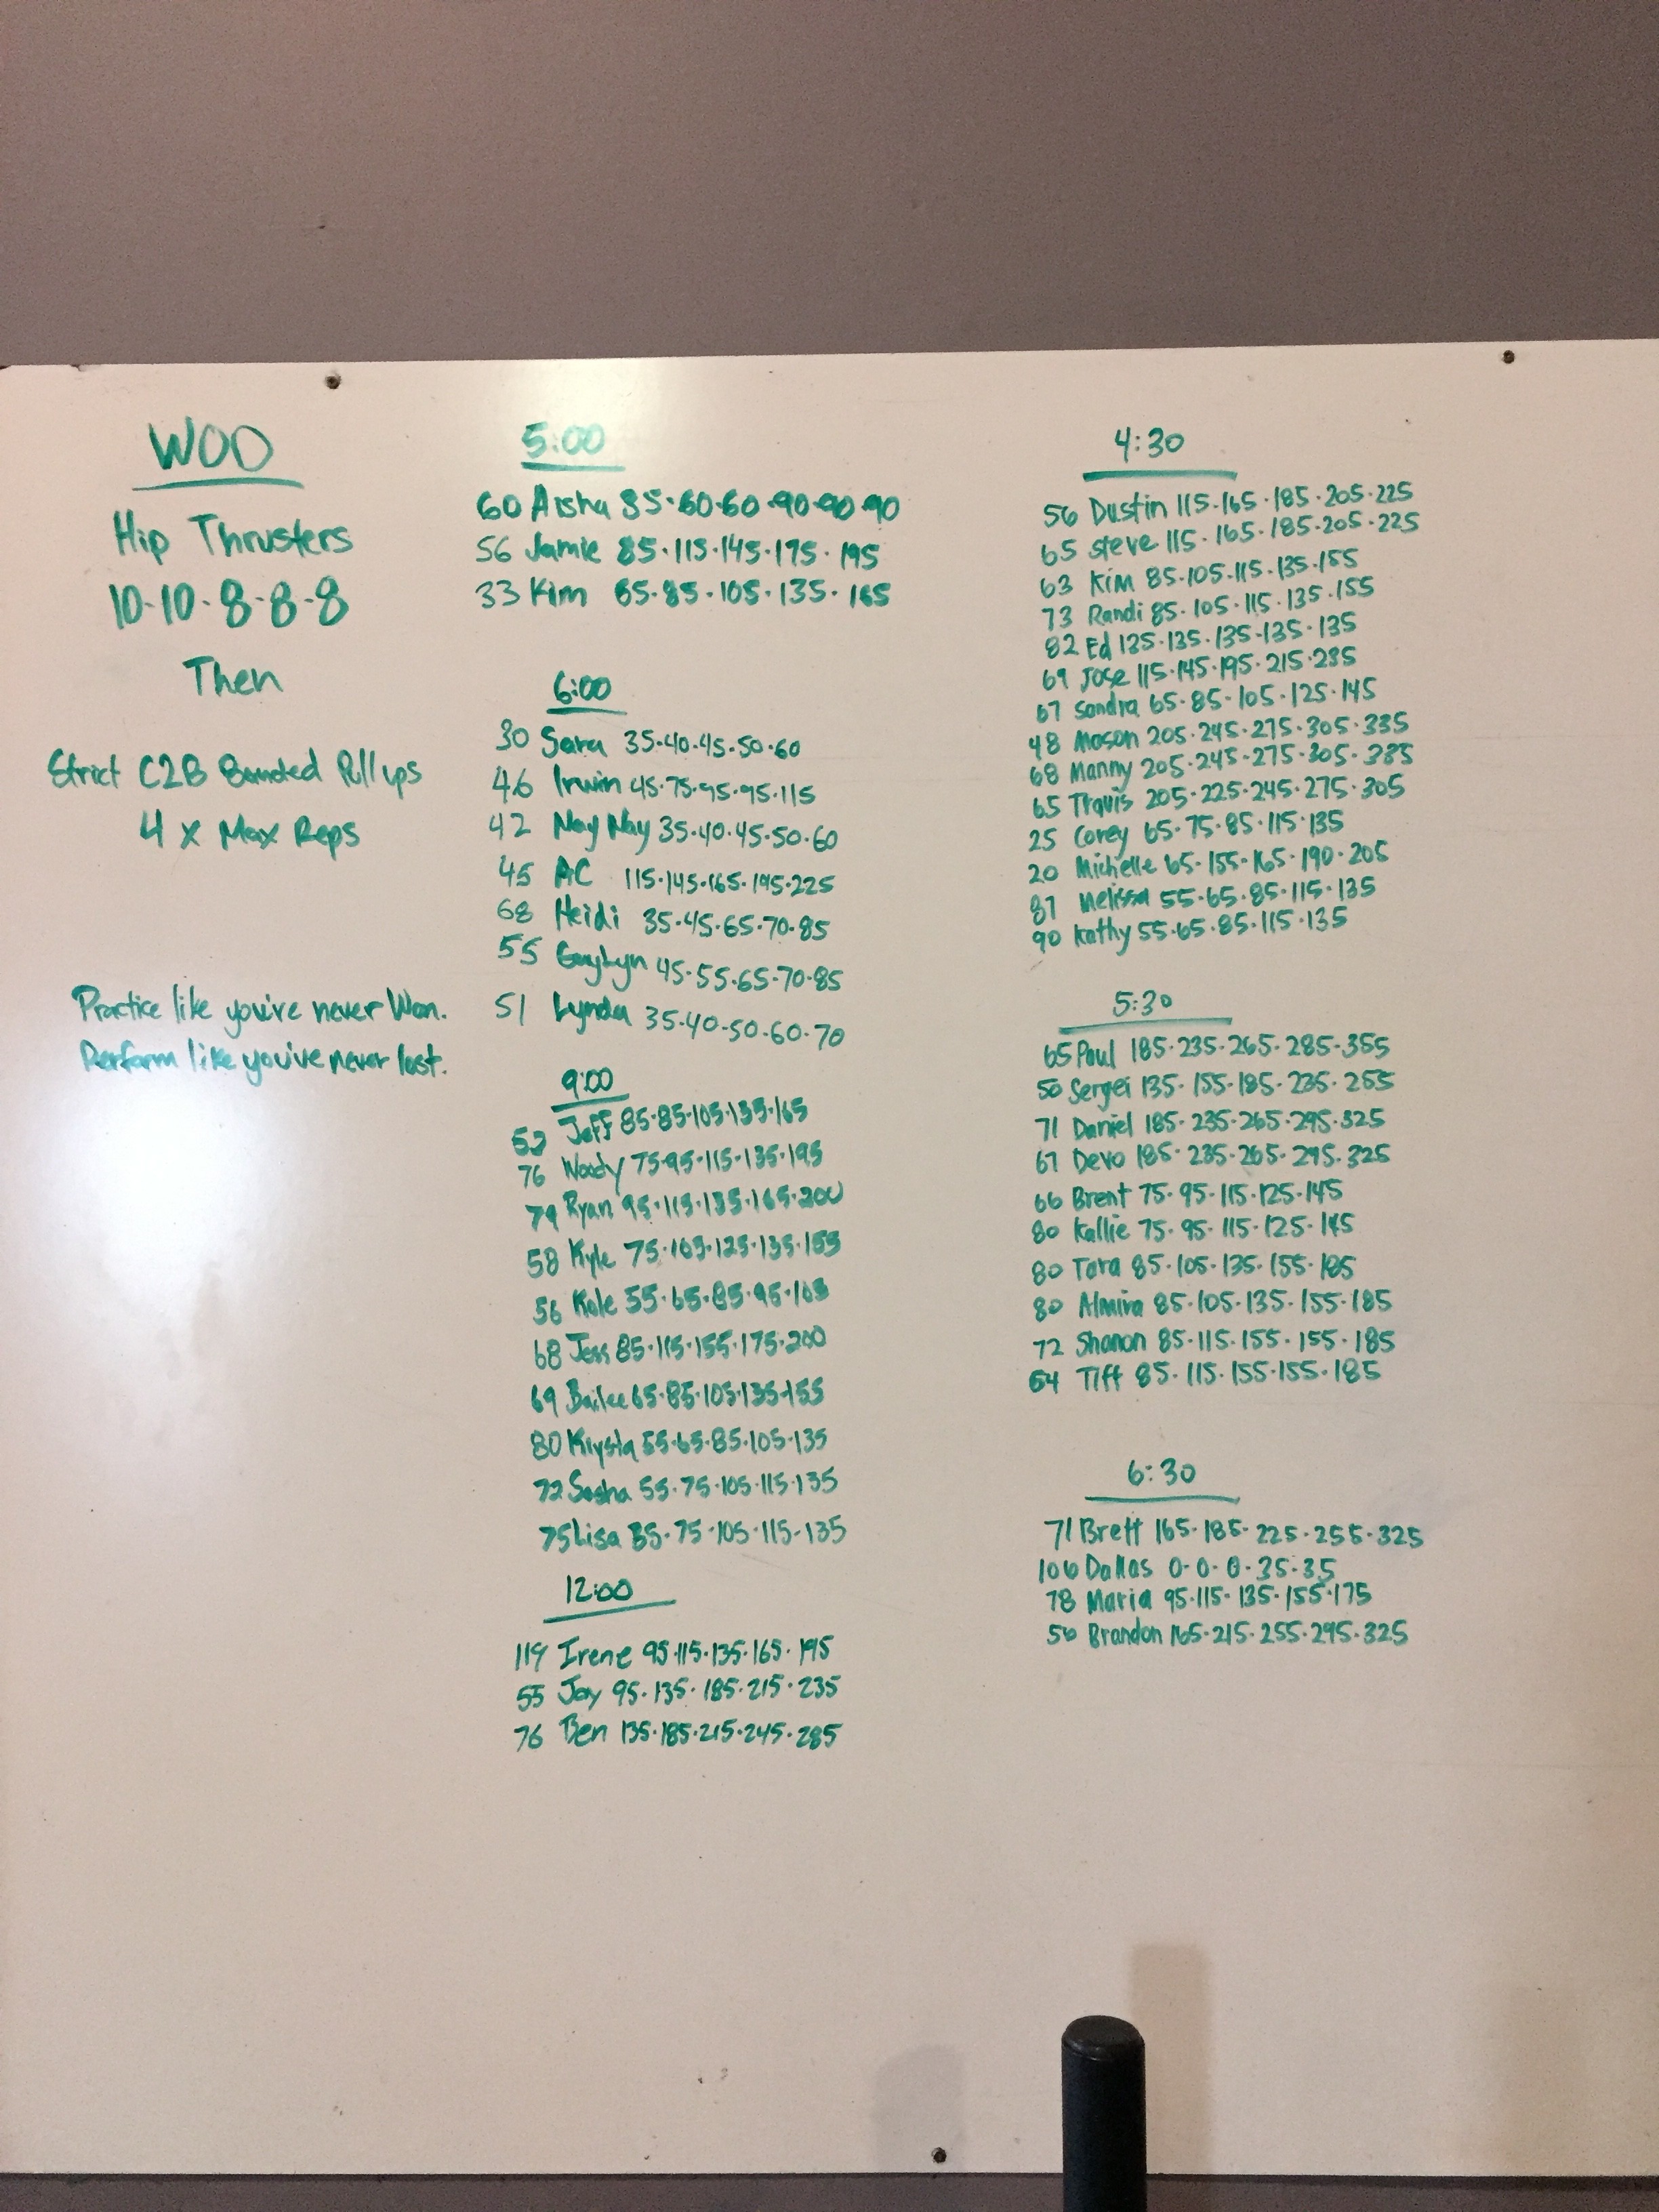 WOD
Hip Thrusters
10-10-8-8-8
Then
Strict C2B Banded Pull ups
4 x Max Reps
Practice like you've never Won.
Perform like you've never lost.
5:00
60 Aisha 35·60·60·90·90·90
56 Jamie 85·115·145·175·195
33 Kim 65·85·105·135·165
6:00
30 Sara 35·40·45·50·60
46 Irwin 45·75·95·95·115
42 Nay Nay 35·40·45·50·60
45 AC 115·145·165·195·225
68 Heidi 35·45·65·70·85
55 GayLyn 45·55·65·70·85
51 Lynda 35·40·50·60·70
9:00
Jeff 85·85·105·135·165
76 Woody 75·95·115·135·195
79 Ryan 95·115·135·165·200
58 Kyle 75·105·125·135·155
56 Kole 55·65·85·95·105
68 Jess 85·115·155·175·200
69 Bailee 65·85·105·135·155
80 Krysta 55·65·85·105·135
72 Sasha 55·75·105·115·135
75 Lisa 55·75·105·115·135
12:00
119 Irene 95·115·135·165·195
55 Jay 95·135·185·215·235
76 Ben 135·185·215·245·285
4:30
56 Dustin 115·165·185·205·225
65 Steve 115·165·185·205·225
63 Kim 85·105·115·135·155
73 Randi 85·105·115·135·155
82 Ed 135·135·135·135·135
69 Jose 115·145·195·215·235
67 Sandra 65·85·105·125·145
48 Mason 205·245·275·305·335
68 Manny 205·245·275·305·335
65 Travis 205·225·245·275·305
25 Corey 65·75·85·115·135
20 Michelle 65·155·165·190·205
87 Melissa 55·65·85·115·135
90 Kathy 55·65·85·115·135
5:30
65 Paul 185·235·265·285·355
50 Sergei 135·155·185·235·255
71 Daniel 185·235·265·295·325
67 Devo 185·235·265·295·325
66 Brent 75·95·115·125·145
80 Kallie 75·95·115·125·145
80 Tara 85·105·135·155·185
80 Almira 85·105·135·155·185
72 Shanon 85·115·155·155·185
54 Tiff 85·115·155·155·185
6:30
71 Brett 165·185·225·255·325
106 Dallas 0·0·0·35·35
78 Maria 95·115·135·155·175
56 Brandon 165·215·255·295·325